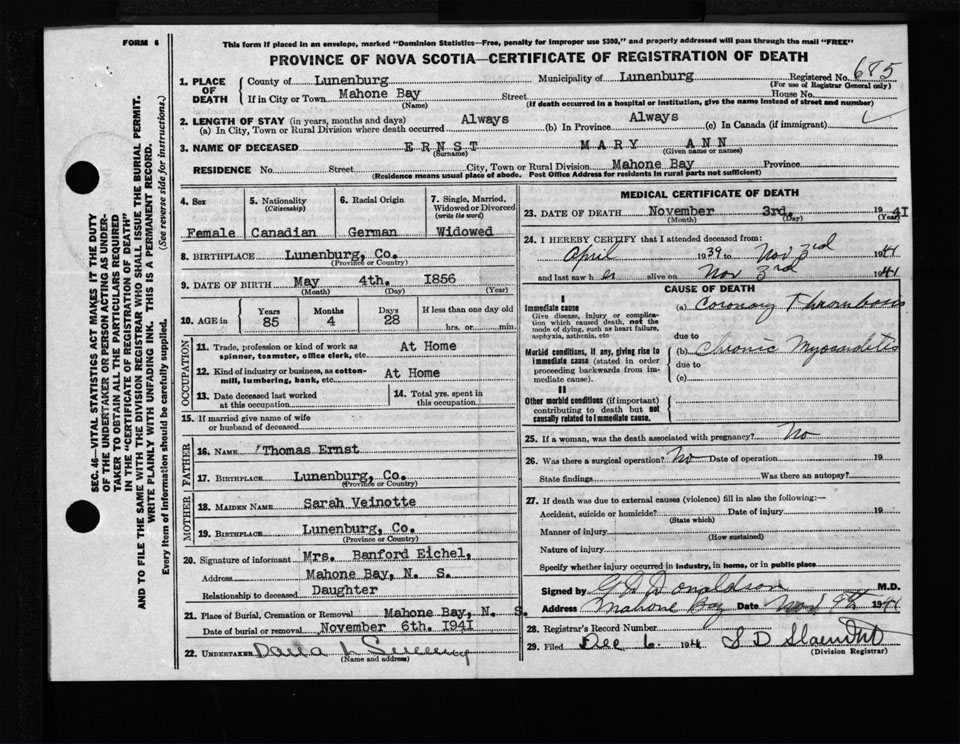 FORM 6
This form if placed in an envelope, marked "Dominion Statistics—Free, penalty for improper use $300," and properly addressed will pass through the mail "FREE"
PROVINCE OF NOVA SCOTIA—CERTIFICATE OF REGISTRATION OF DEATH
SEC. 46—VITAL STATISTICS ACT MAKES IT THE DUTY
OF THE UNDERTAKER OR PERSON ACTING AS UNDER-
TAKER TO OBTAIN ALL THE PARTICULARS REQUIRED
IN THE "CERTIFICATE OF REGISTRATION OF DEATH"
AND TO FILE THE SAME WITH THE DIVISION REGISTRAR WHO SHALL ISSUE THE BURIAL PERMIT.
WRITE PLAINLY WITH UNFADING INK. THIS IS A PERMANENT RECORD.
Every item of information should be carefully supplied. (See reverse side for instructions.)
1. PLACE OF DEATH
County of Lunenburg Municipality of Lunenburg Registered No. 685
(For use of Registrar General only)
If in City or Town Mahone Bay Street House No.
(Name) (If death occurred in a hospital or institution, give the name instead of street and number)
2. LENGTH OF STAY (in years, months and days)
(a) In City, Town or Rural Division where death occurred Always (b) In Province Always (c) In Canada (if immigrant)
3. NAME OF DECEASED ERNST MARY ANN
(Surname) (Given name or names)
RESIDENCE No. Street City, Town or Rural Division Mahone Bay Province
(Residence means usual place of abode. Post Office Address for residents in rural parts not sufficient)
4. Sex Female
5. Nationality (Citizenship) Canadian
6. Racial Origin German
7. Single, Married, Widowed or Divorced (write the word) Widowed
8. BIRTHPLACE Lunenburg, Co.
(Province or Country)
9. DATE OF BIRTH May 4th. 1856
(Month) (Day) (Year)
10. AGE in Years 85 Months 4 Days 28 If less than one day old hrs. or min.
OCCUPATION
11. Trade, profession or kind of work as spinner, teamster, office clerk, etc. At Home
12. Kind of industry or business, as cotton-mill, lumbering, bank, etc. At Home
13. Date deceased last worked at this occupation
14. Total yrs. spent in this occupation
15. If married give name of wife or husband of deceased
FATHER
16. NAME Thomas Ernst
17. BIRTHPLACE Lunenburg, Co.
(Province or Country)
MOTHER
18. MAIDEN NAME Sarah Veinotte
19. BIRTHPLACE Lunenburg, Co.
(Province or Country)
20. Signature of informant Mrs. Banford Eichel,
Address Mahone Bay, N. S.
Relationship to deceased Daughter
21. Place of Burial, Cremation or Removal Mahone Bay, N. S.
Date of burial or removal November 6th. 1941
22. UNDERTAKER
(Name and address)
MEDICAL CERTIFICATE OF DEATH
23. DATE OF DEATH November 3rd, 1941
(Month) (Day) (Year)
24. I HEREBY CERTIFY that I attended deceased from:
April 1939 to Nov 3rd 1941
and last saw her alive on Nov 3rd 1941
CAUSE OF DEATH
I
Immediate cause
Give disease, injury or complication which caused death, not the mode of dying, such as heart failure, asphyxia, asthenia, etc
(a) Coronary Thrombosis
due to
Morbid conditions, if any, giving rise to immediate cause (stated in order proceeding backwards from immediate cause).
(b) Chronic Myocarditis
due to
(c)
II
Other morbid conditions (if important) contributing to death but not causally related to immediate cause.
25. If a woman, was the death associated with pregnancy? No
26. Was there a surgical operation? No Date of operation 19
State findings Was there an autopsy?
27. If death was due to external causes (violence) fill in also the following:—
Accident, suicide or homicide? Date of injury 19
(State which)
Manner of injury
(How sustained)
Nature of injury
Specify whether injury occurred in industry, in home, or in public place
Signed by G D Donaldson M.D.
Address Mahone Bay Date Nov 9th 1941
28. Registrar's Record Number
29. Filed Dec 6 1941 S D
(Division Registrar)